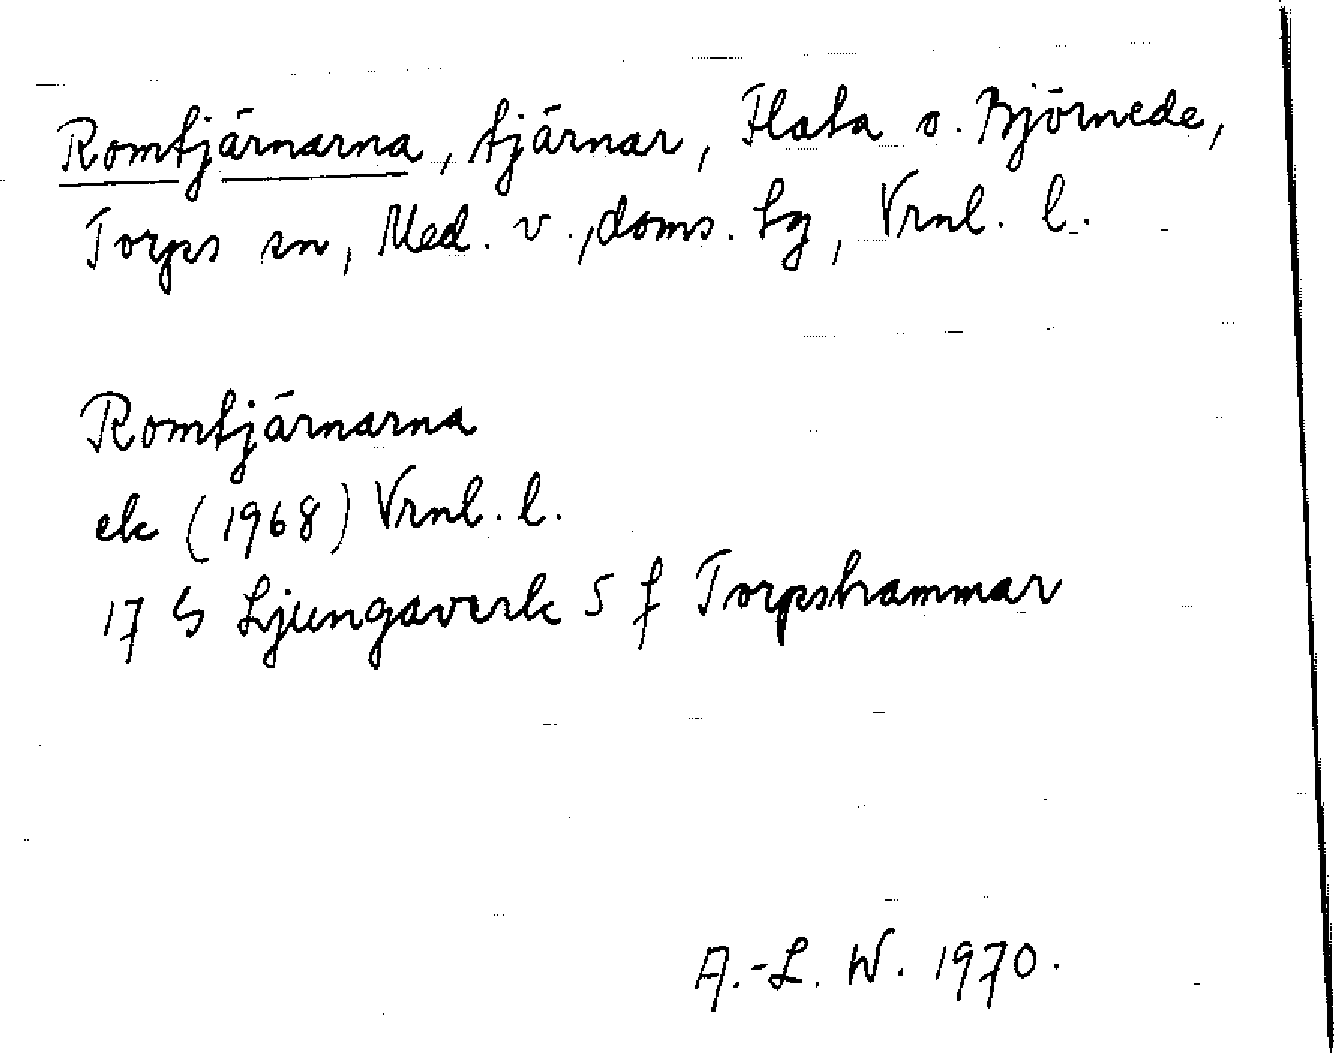 Romtjärnarna, tjärnar, Flata o. Björnede,
Torps sn, Med. v., doms. hg, Vrnl. l.
Romtjärnarna
ek (1968) Vrnl. l.
17 G Ljungaverk 5 f Torpshammar
A.-L. W. 1970.